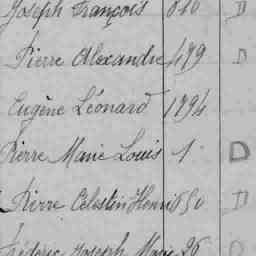 Joseph François 810 D
Pierre Alexandre 499 D
Eugène Léonard 1294
Pierre Marie Louis 1 D
Pierre Célestin Henri 650 D
Frédéric Joseph Marie 26 D